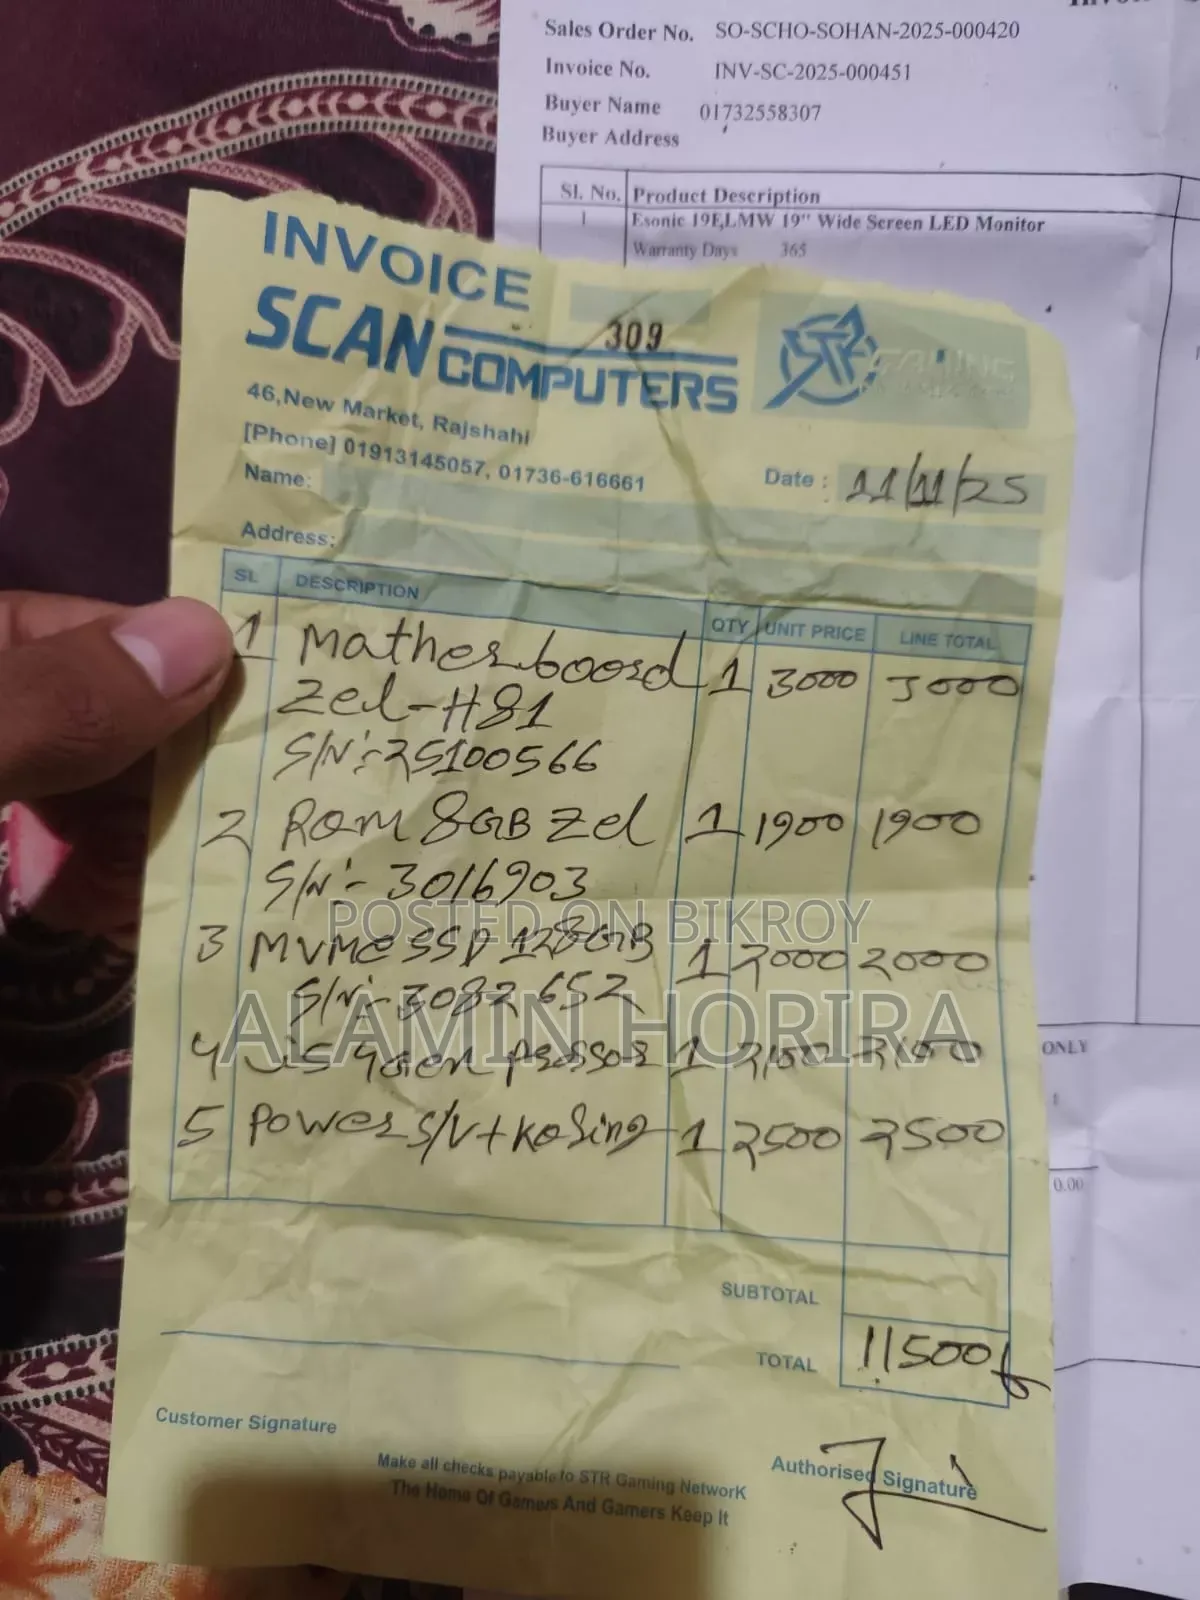 Sales Order No. SO-SCHO-SOHAN-2025-000420
Invoice No. INV-SC-2025-000451
Buyer Name 01732558307
Buyer Address
Sl. No. Product Description
1 Esonic 19ELMW 19" Wide Screen LED Monitor
Warranty Days 365
INVOICE
309
SCAN COMPUTERS
STR GAMING
46,New Market, Rajshahi
[Phone] 01913145057, 01736-616661
Name:
Date : 11/11/25
Address:
SL DESCRIPTION QTY UNIT PRICE LINE TOTAL
1 Matherboord 1 3000 3000
Zel-H81
S/N:-25100566
2 Ram 8GB Zel 1 1900 1900
S/N:- 3016903
3 MVMe SSD 128GB 1 2000 2000
S/N:-3082652
4 i5 4Gen 1 2100 2100
5 Power S/V+Kasing 1 2500 2500
POSTED ON BIKROY
ALAMIN HORIRA
ONLY
0.00
SUBTOTAL
TOTAL 11500
Customer Signature
Authorised Signature
Make all checks payable to STR Gaming NetworK
The Home Of Gamers And Gamers Keep It